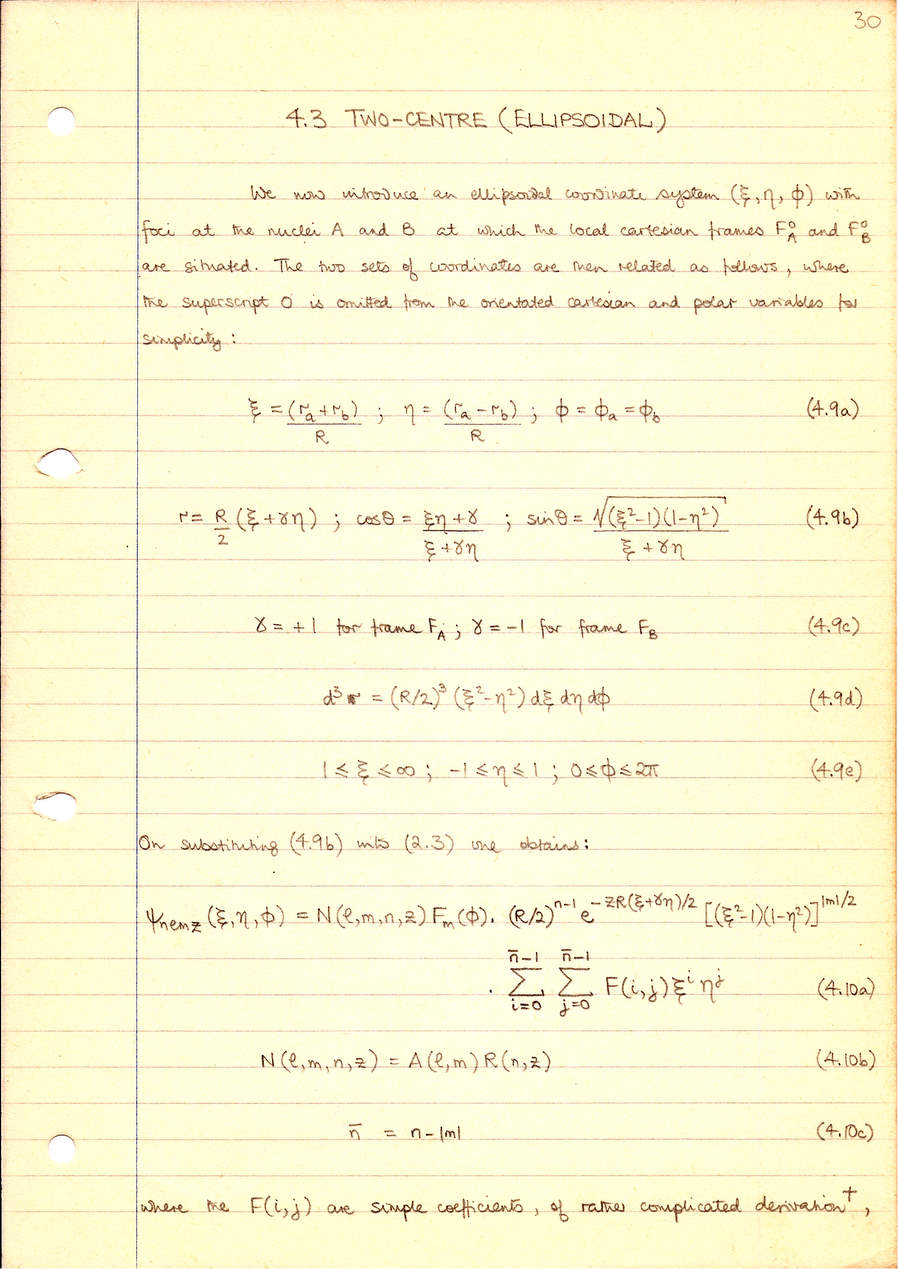 30
4.3 TWO-CENTRE (ELLIPSOIDAL)
We now introduce an ellipsoidal coordinate system (ξ, η, ϕ) with
foci at the nuclei A and B at which the local cartesian frames F_A^0 and F_B^0
are situated. The two sets of coordinates are then related as follows, where
the superscript 0 is omitted from the orientated cartesian and polar variables for
simplicity :
ξ = (r_a + r_b)/R ; η = (r_a - r_b)/R ; ϕ = ϕ_a = ϕ_b (4.9a)
r = R/2 (ξ + γη) ; cosθ = (ξη + γ)/(ξ + γη) ; sinθ = √((ξ²-1)(1-η²))/(ξ + γη) (4.9b)
γ = +1 for frame F_A ; γ = -1 for frame F_B (4.9c)
d³r = (R/2)³ (ξ²-η²) dξ dη dϕ (4.9d)
1 ≤ ξ ≤ ∞ ; -1 ≤ η ≤ 1 ; 0 ≤ ϕ ≤ 2π (4.9e)
On substituting (4.9b) into (2.3) one obtains :
ψ_nℓmz (ξ, η, ϕ) = N(ℓ,m,n,z) F_m(ϕ). (R/2)^{n-1} e^{-zR(ξ+γη)/2} [(ξ²-1)(1-η²)]^{|m|/2}
. ∑_{i=0}^{n̄-1} ∑_{j=0}^{n̄-1} F(i,j) ξ^i η^j (4.10a)
N(ℓ,m,n,z) = A(ℓ,m) R(n,z) (4.10b)
n̄ = n-|m| (4.10c)
where the F(i,j) are simple coefficients, of rather complicated derivation†,